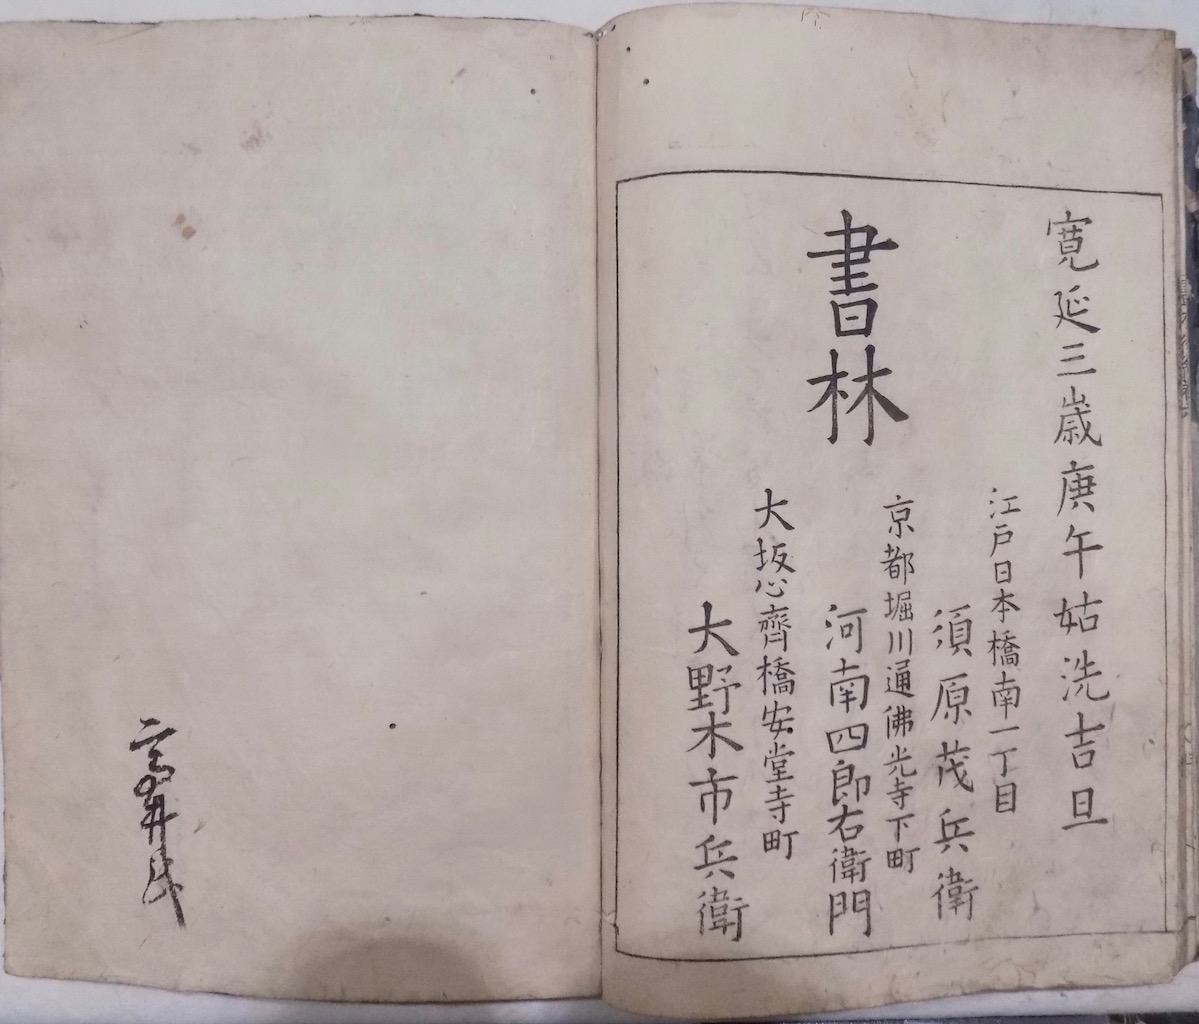 寛延三歳庚午姑洗吉旦
江戸日本橋南一丁目
須原茂兵衛
京都堀川通佛光寺下町
河南四郎右衛門
書林
大坂心齋橋安堂寺町
大野木市兵衛
高井氏